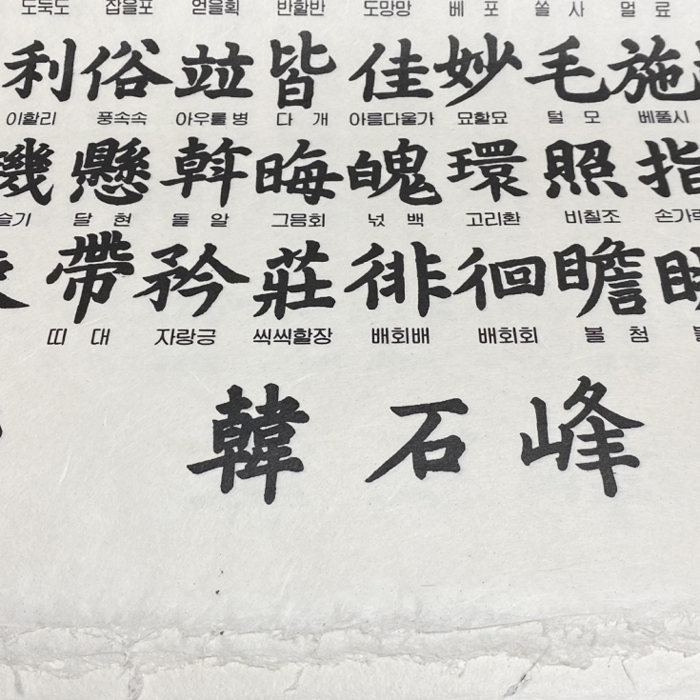 도둑도 잡을포 얻을획 반할반 도망망 베 포 쏠 사 멀 료
利 俗 竝 皆 佳 妙 毛 施
이할리 풍속속 아우를병 다 개 아름다울가 묘할묘 털 모 베풀시
璣 懸 斡 晦 魄 環 照 指
슬기 달 현 돌 알 그믐회 넋 백 고리환 비칠조 손가락
帶 矜 莊 徘 徊 瞻
띠 대 자랑긍 씩씩할장 배회배 배회회 볼 첨
韓 石 峰